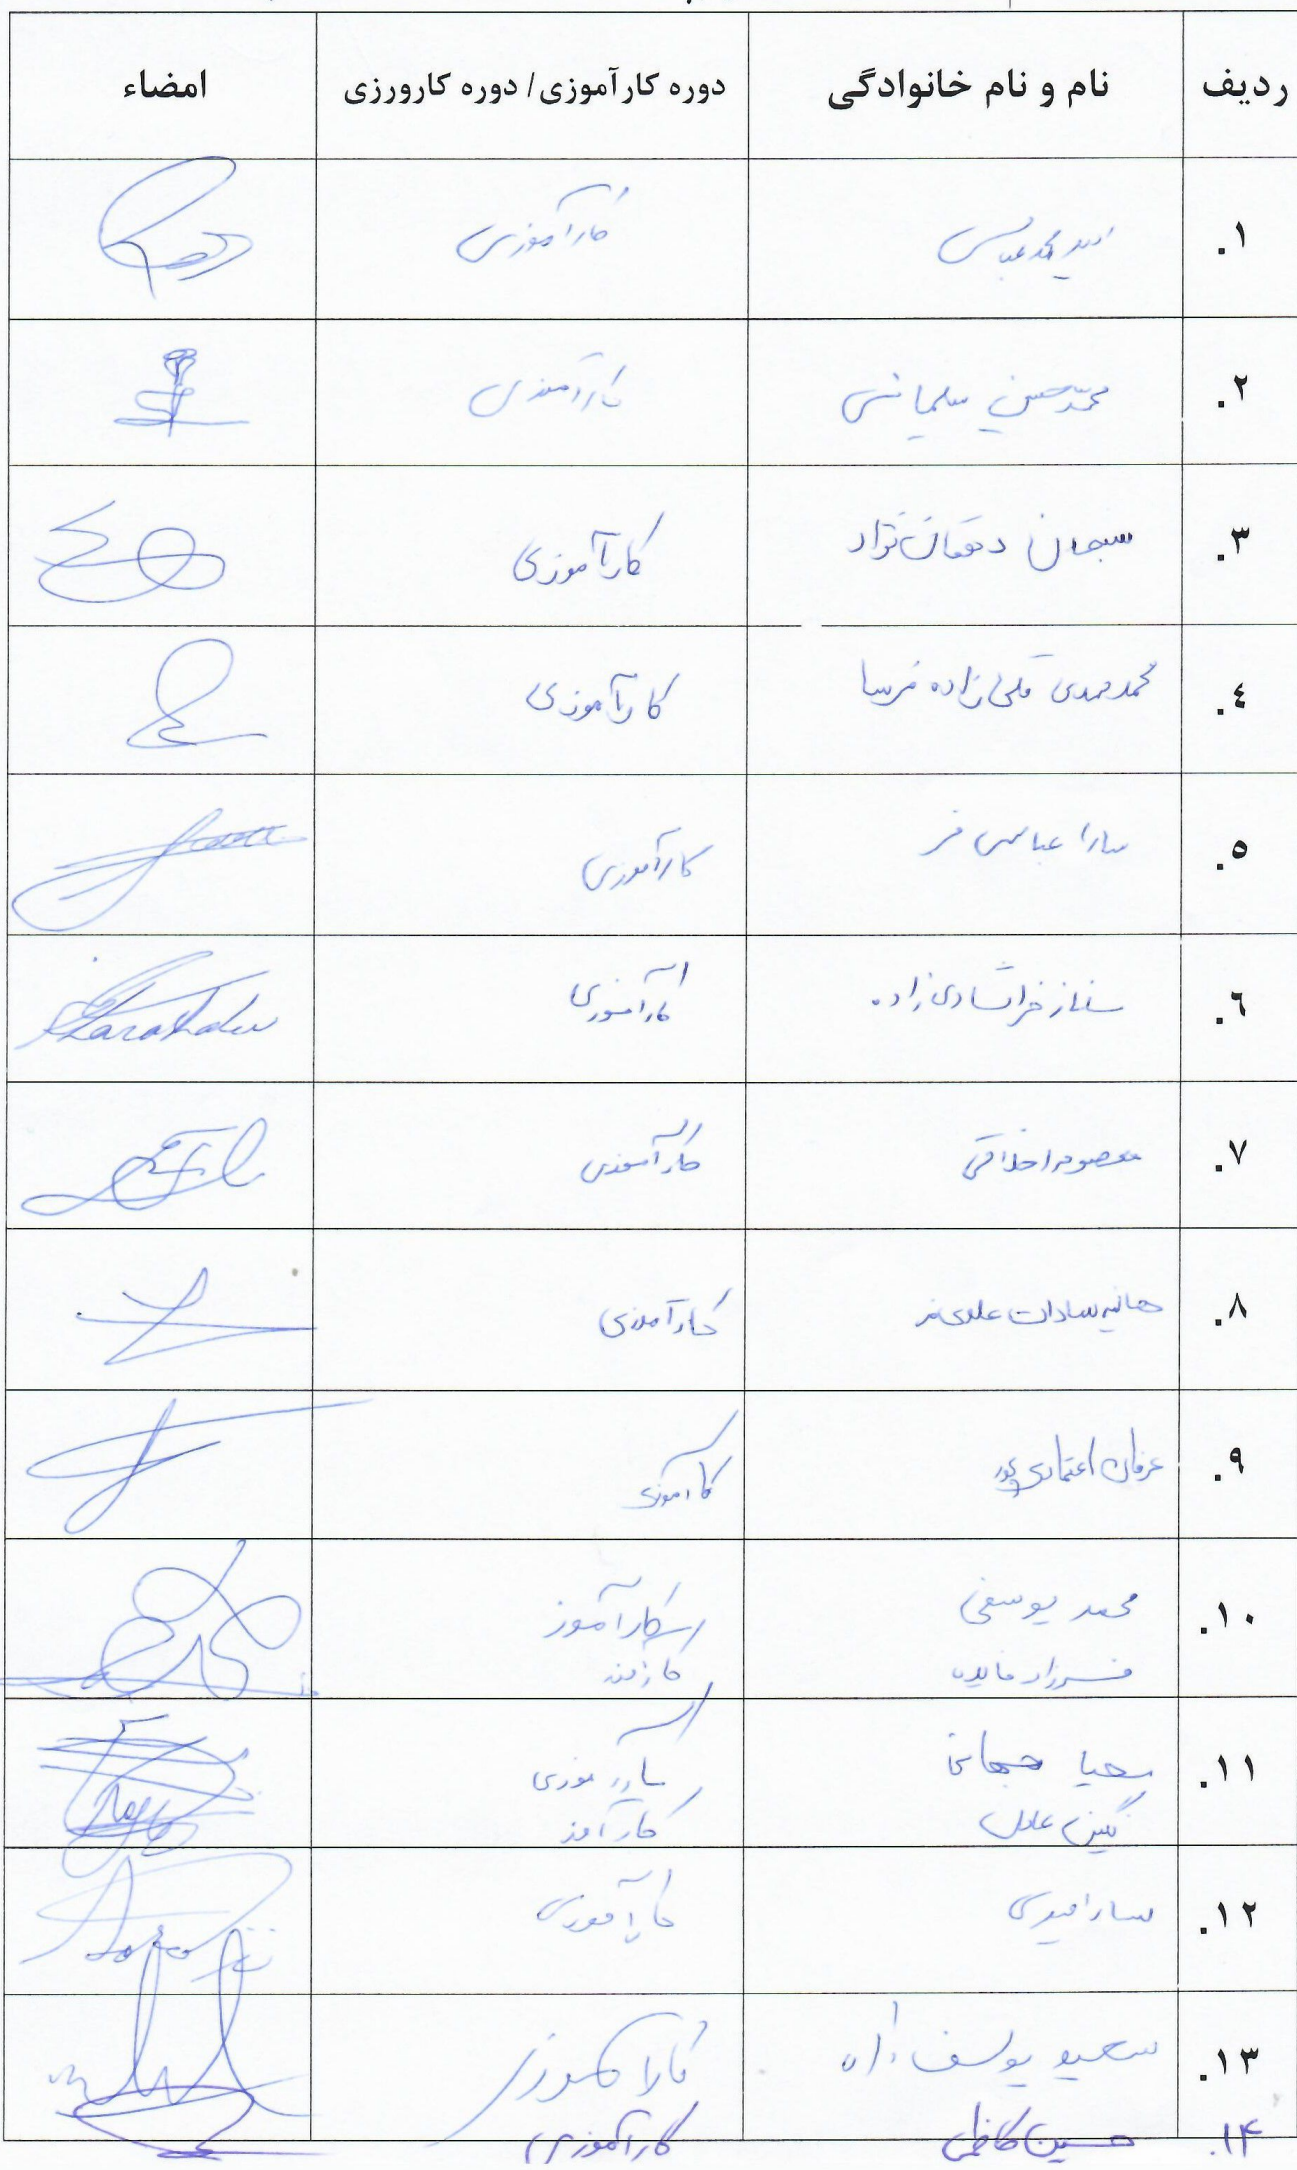 ردیف نام و نام خانوادگی دوره کارآموزی/ دوره کارورزی امضاء
.۱ امید محمد عباسی کارآموزی
.۲ محمدحسین سلیمانی کارآموزی
.۳ سبحان دهقان نژاد کارآموزی
.٤ محمدمهدی قلی زاده فرسا کارآموزی
.٥ سارا عباسی فر کارآموزی
.٦ ساناز زاده کارآموزی
.۷ معصومه اخلاقی کارآموزی
.۸ هانیه سادات علوی فر کارآموزی
.۹ عرفان اعتمادی پور کارآموزی
.۱۰ محمد یوسفی کارآموز
فرزاد
.۱۱ جهانی کارآموزی
نگین عادل کارآموز
.۱۲ سارا امیری کارآموزی
.۱۳ سعید یوسف زاده کارآموزی
.۱۴ حسین کاظمی کارآموزی